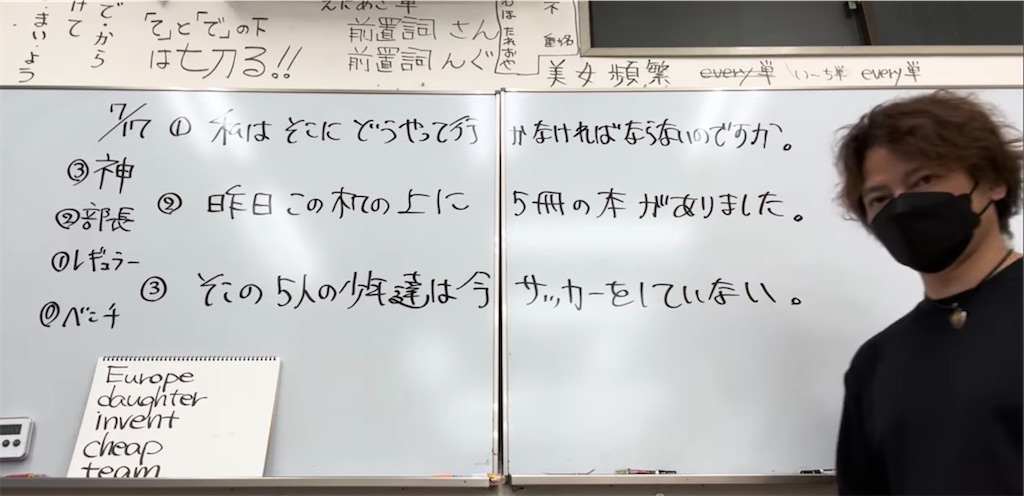 で・から
けて
まい・よう
「て」と「で」の下
は七刀る!!
前置詞 さん
前置詞 んぐ
不
美女頻繁 every単 いーち単 every単
7/17 ① 私は そこに どうやって行かなければならないのですか。
③神
②部長
①レギュラー
⓪ベンチ
② 昨日この机の上に 5冊の本がありました。
③ そこの5人の少年達は今サッカーをしていない。
Europe
daughter
invent
cheap
team